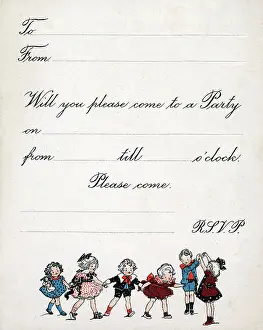 To
From
Will you please come to a Party
on
from till o'clock.
Please come.
R.S.V.P.